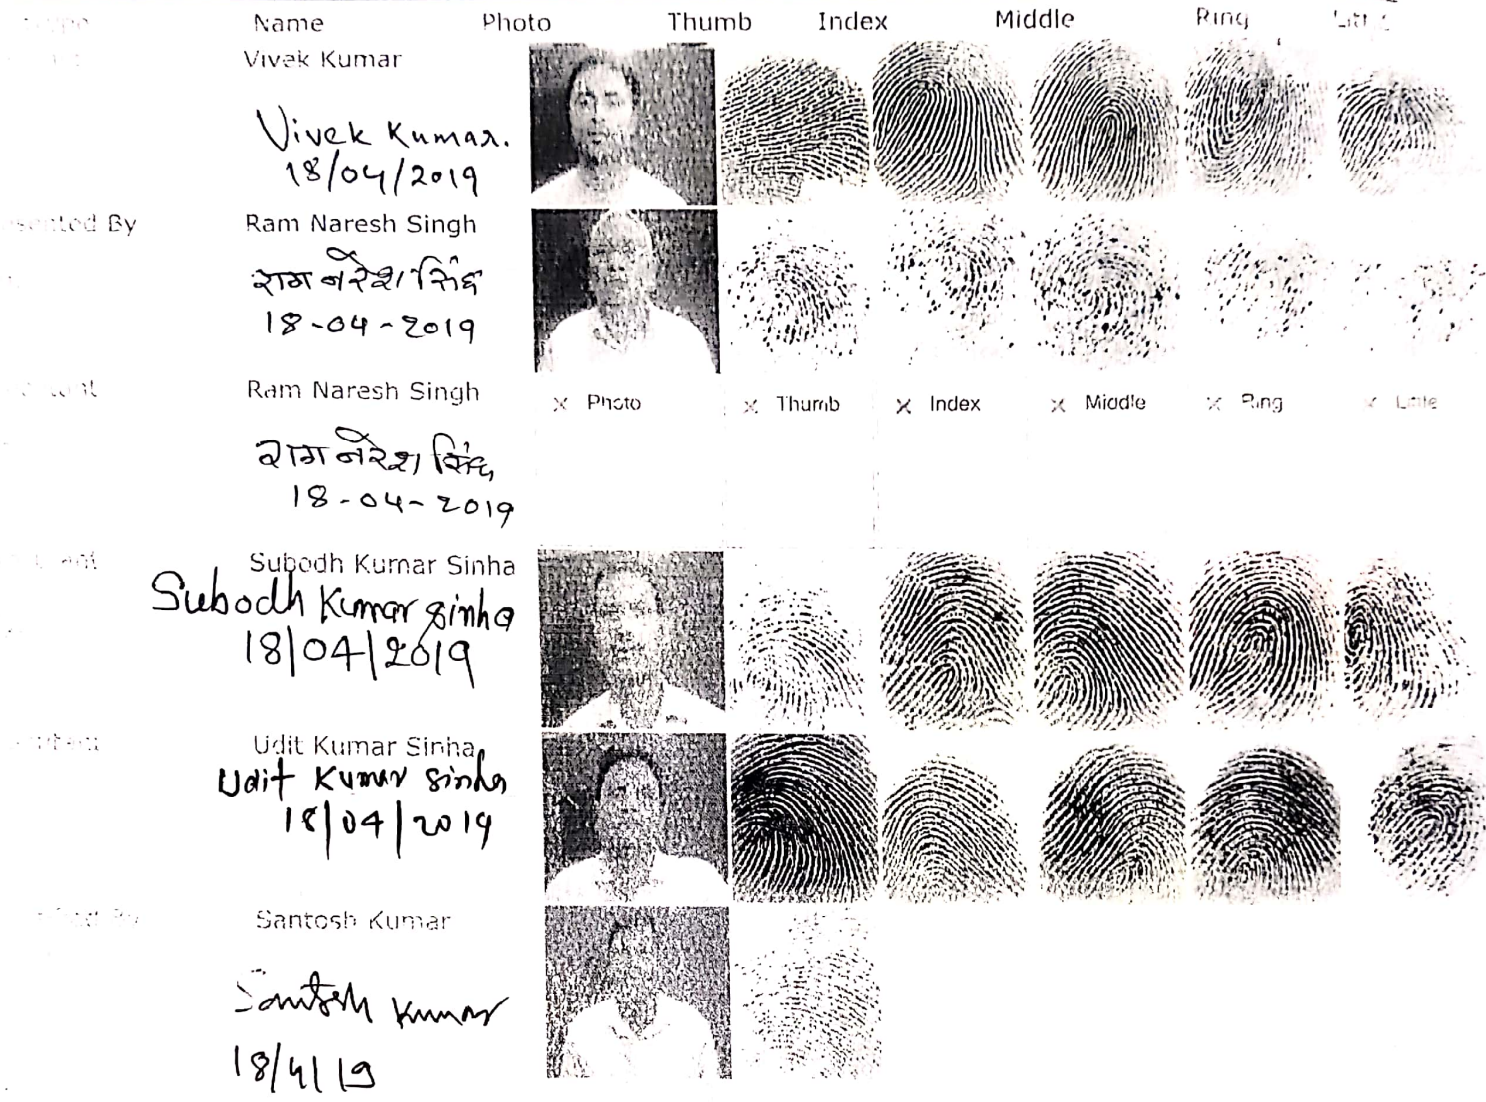 Name Photo Thumb Index Middle Ring
Vivek Kumar
Vivek Kumar.
18/04/2019
By Ram Naresh Singh
राम नरेश सिंह
18-04-2019
Ram Naresh Singh
× Photo × Thumb × Index × Middle × Ring × Little
राम नरेश सिंह
18-04-2019
Subodh Kumar Sinha
Subodh Kumar Sinha
18/04/2019
Udit Kumar Sinha
Udit Kumar Sinha
18/04/2019
Santosh Kumar
Santosh Kumar
18/4/19